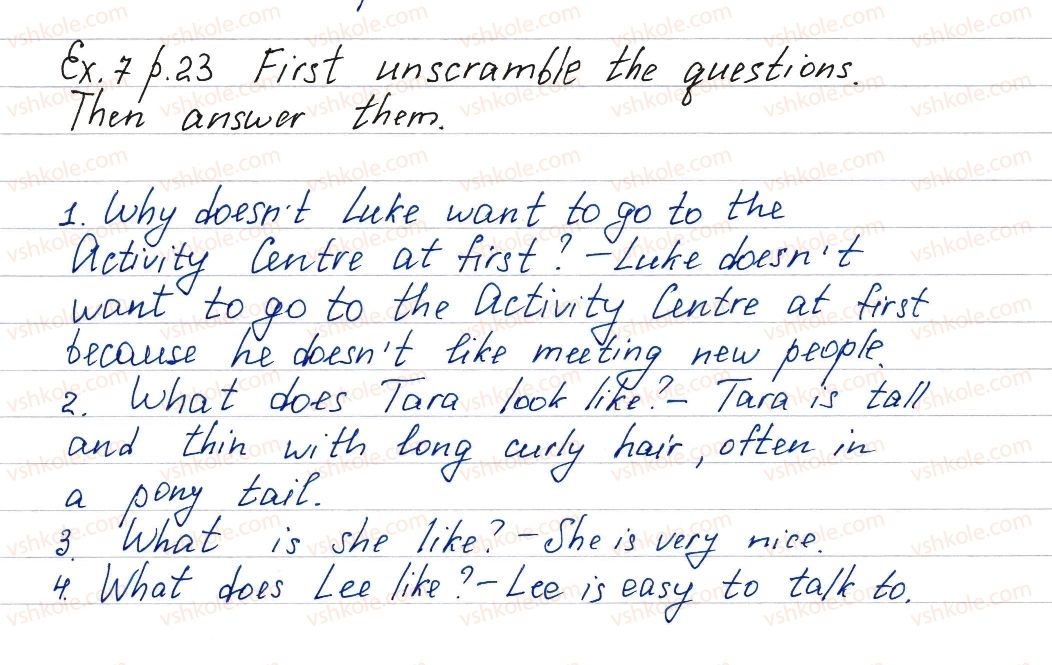 Ex. 7 p.23 First unscramble the questions.
Then answer them.
1. Why doesn't Luke want to go to the
Activity Centre at first? - Luke doesn't
want to go to the Activity Centre at first
because he doesn't like meeting new people.
2. What does Tara look like? - Tara is tall
and thin with long curly hair, often in
a pony tail.
3. What is she like? - She is very nice.
4. What does Lee like? - Lee is easy to talk to.